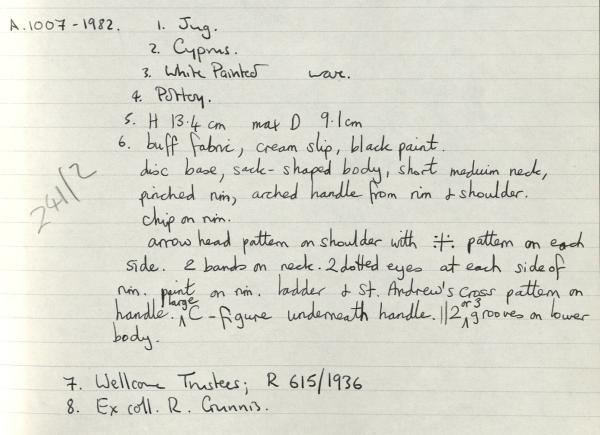 A.1007-1982. 1. Jug.
2. Cyprus.
3. White Painted ware.
4. Pottery.
5. H 13.4 cm max D 9.1cm
6. buff fabric, cream slip, black paint.
disc base, sack-shaped body, short meduim neck,
pinched rim, arched handle from rim & shoulder.
chip on rim.
arrow head pattern on shoulder with ⁜ pattern on each
side. 2 bands on neck. 2 dotted eyes at each side of
rim. paint on rim. ladder & St. Andrew's cross pattern on
handle. large C-figure underneath handle. || 2 or 3 grooves on lower
body.
241/2
7. Wellcome Trustees; R 615/1936
8. Ex coll. R. Gunnis.